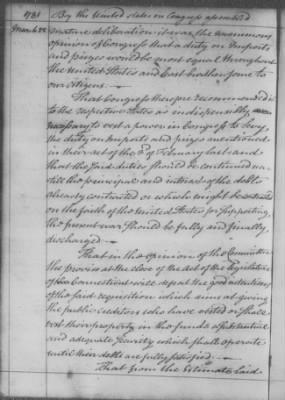 1781 By the United States in Congress assembled
March 22 mature deliberation it was the unanimous
opinion of Congress that a duty on Imports
and prizes would be most equal throughout
the United States and least burthensome to
our Citizens.
That Congress therefore recommended it
to the respective States as indispensibly
necessary to vest a power in Congress to levy
the duty on imports and prizes mentioned
in their act of the 3d of February last and
that the said duties should be continued un-
till the principal and interest of the debts
already contracted or which might be contracted
on the faith of the United States for supporting
the present war should be fully and finally
discharged.
That in the opinion of the Committee
the proviso at the close of the act of the Legislature
of Connecticut will defeat the good intentions
of the said requisition which aims at giving
the public creditors who have vested or shall
vest their property in the funds a substantial
and adequate security which shall operate
until their debts are fully satisfied.
That from the Estimate laid